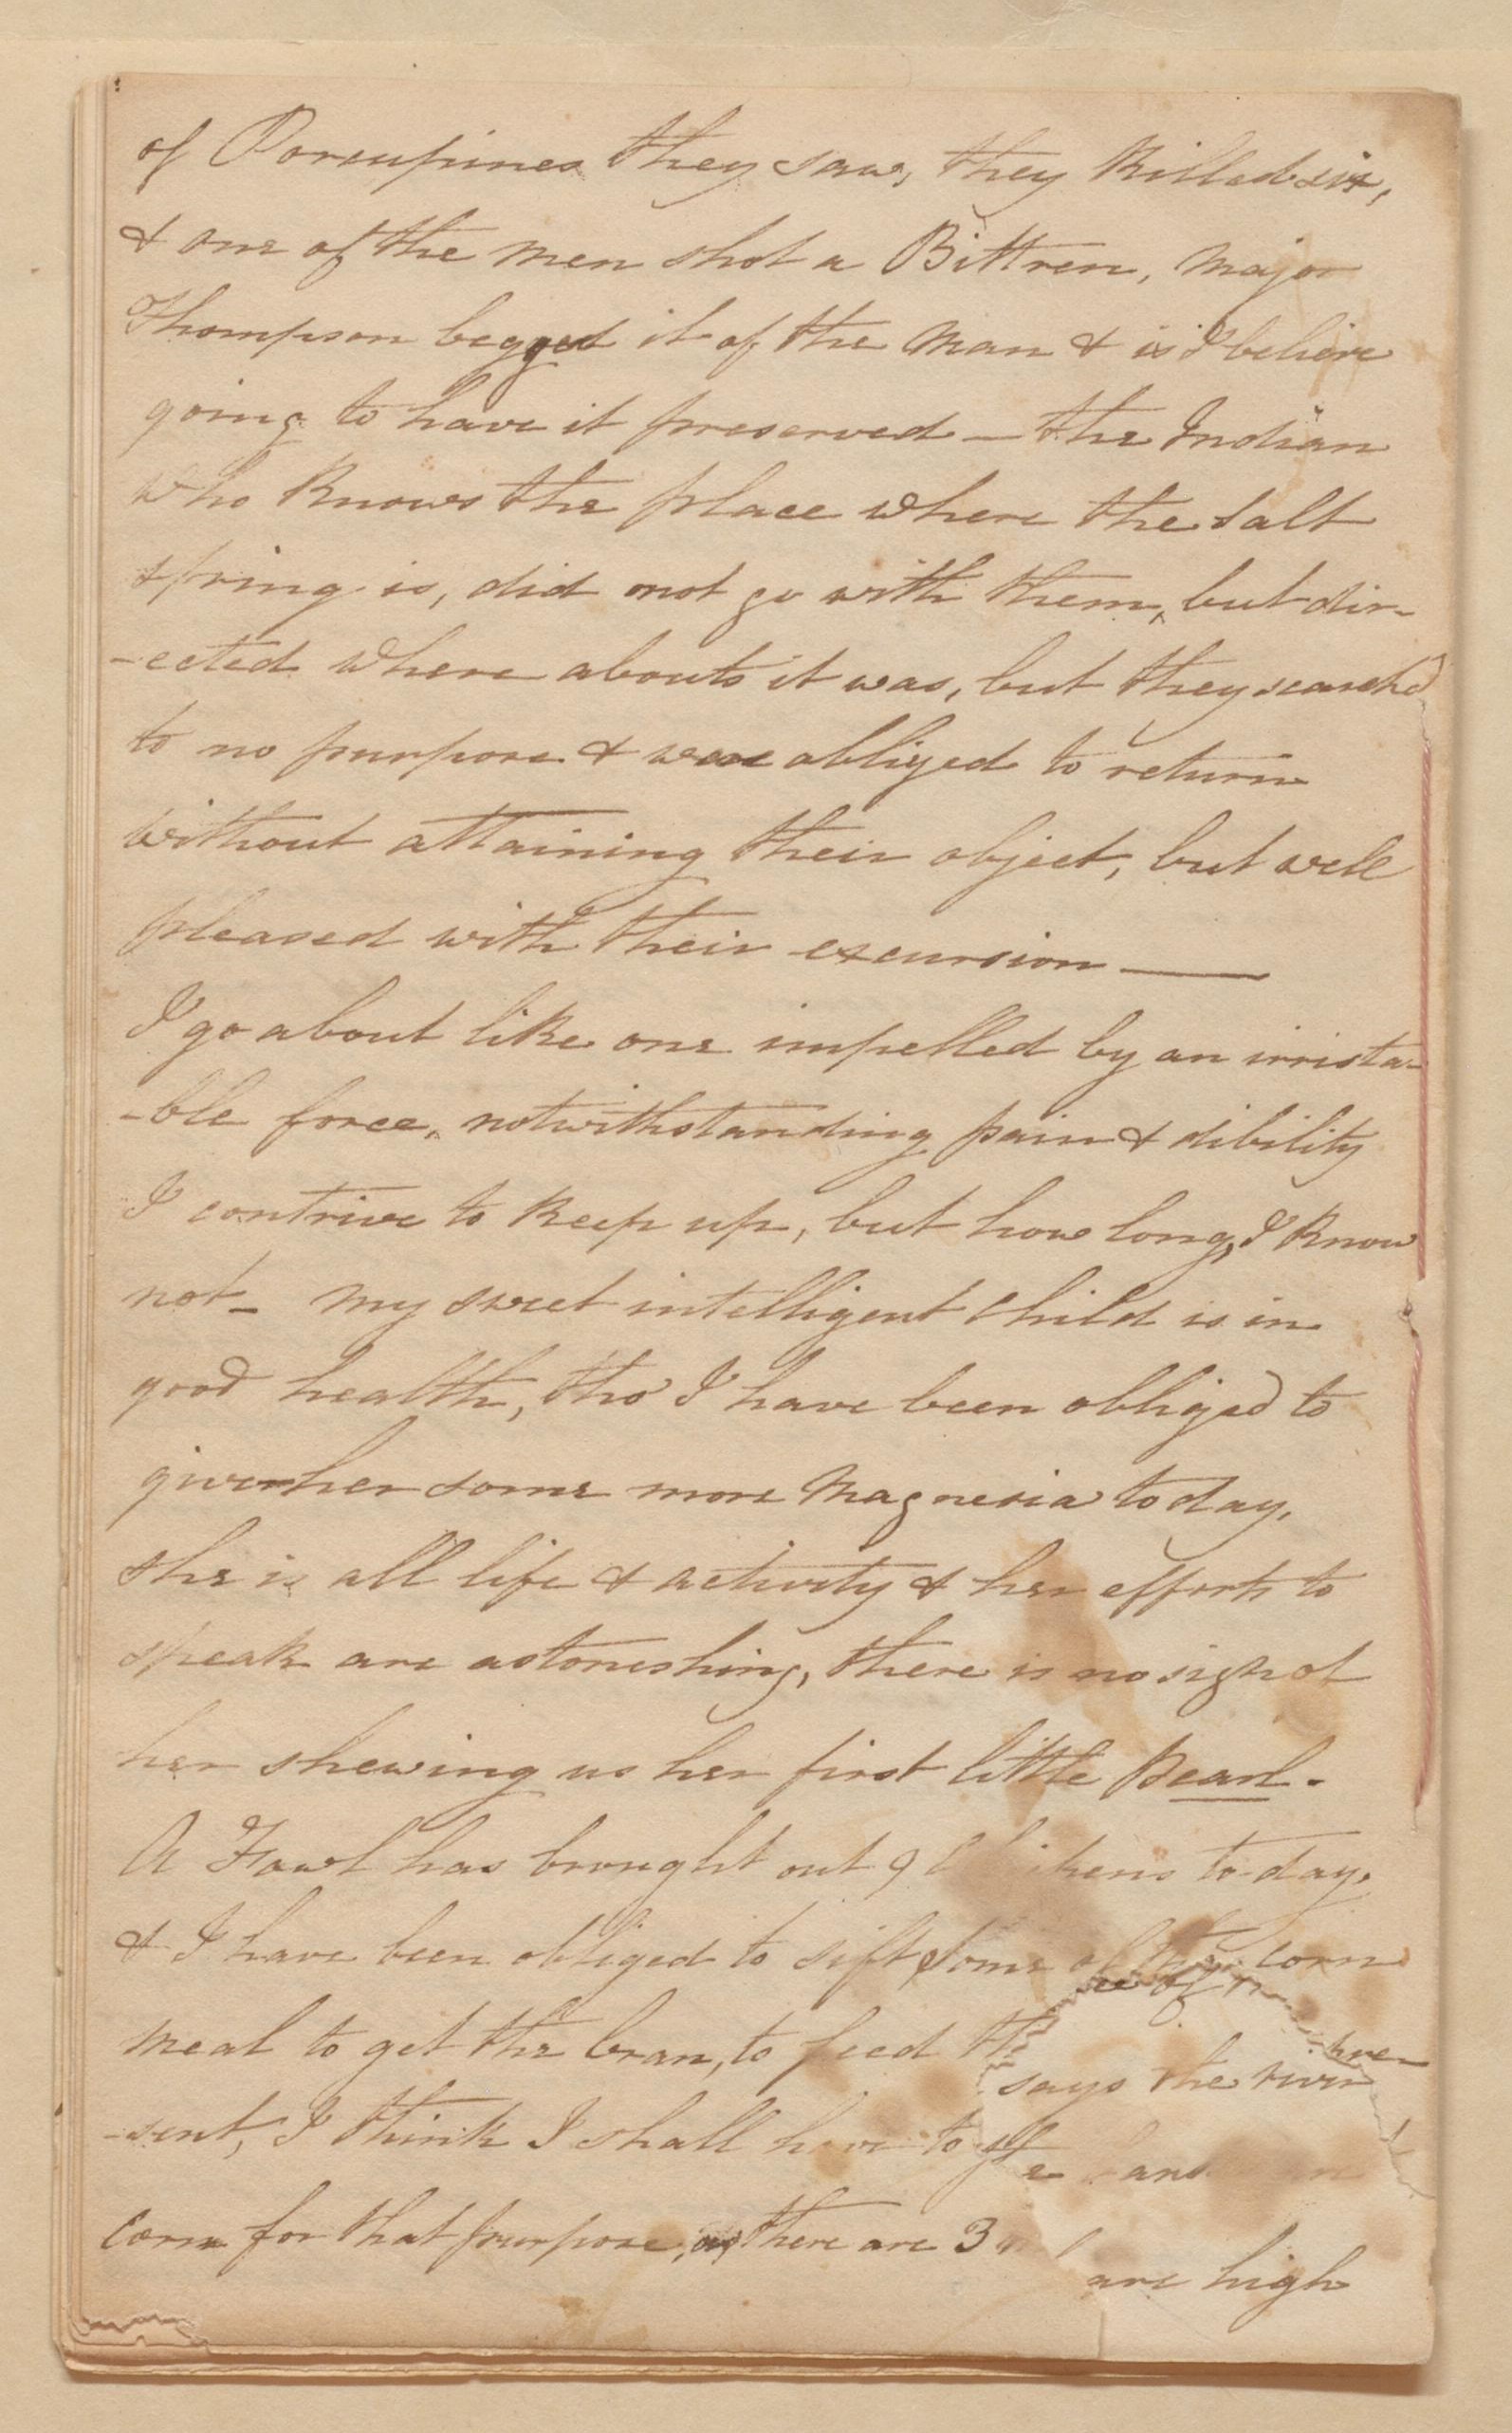 of Porcupines they saw, they killed six,
& one of the men shot a Bittren, Major
Thompson begged it of the man & is I believe
going to have it preserved – the Indian
who knows the place where the salt
spring is, did not go with them, but dir-
-ected where abouts it was, but they search'd
to no purpose & were obliged to return
without attaining their object, but well
pleased with their excursion —
I go about like one impelled by an irrista-
-ble force, notwithstanding pain & dibility
I contrive to keep up, but how long, I know
not – my sweet intelligent Child is in
good health, tho' I have been obliged to
give her some more Magnesia to day,
she is all life & activity & her efforts to
speak are astoneshing, there is no sign of
her shewing us her first little Pearl.
A Fowl has brought out 9 to-day,
& I have been obliged to sift some of corn
meal to get the bran, to feed
says the river
-sent, I think I shall have to
corn for that purpose, as there are 3
are high